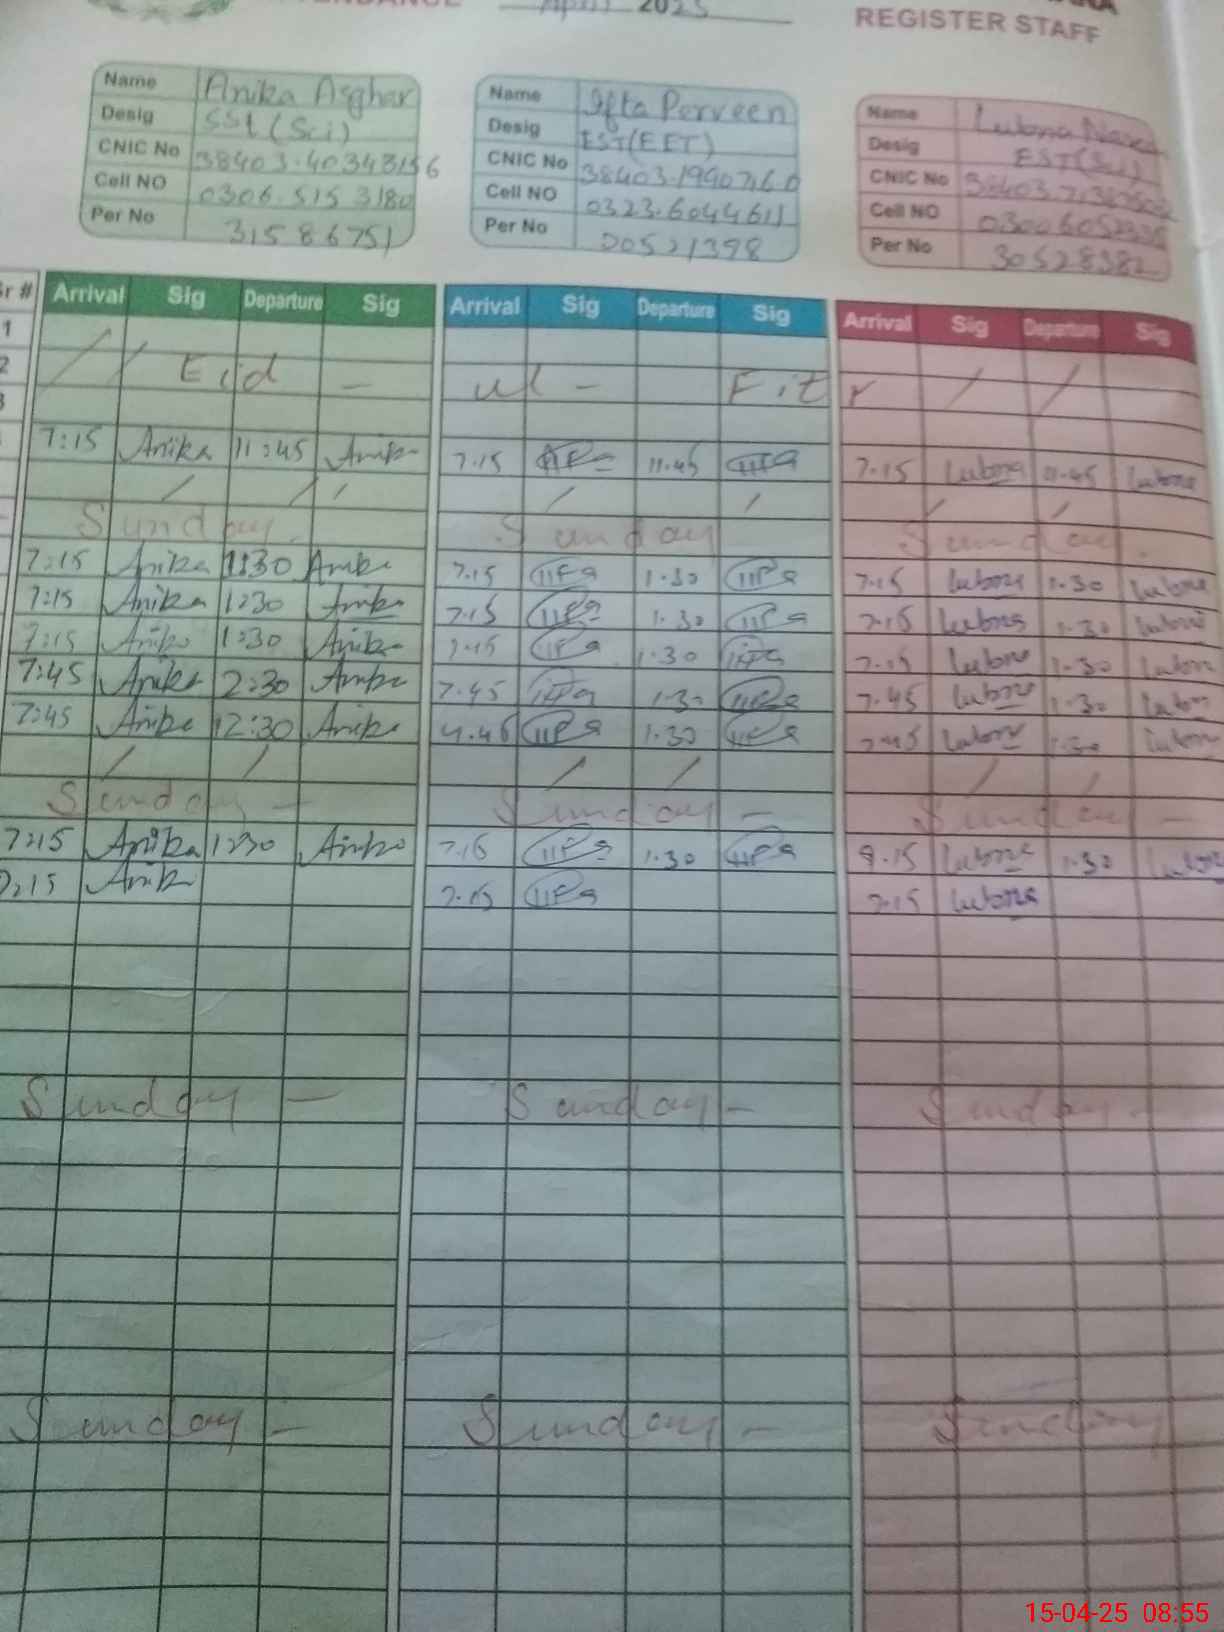 April 2025
REGISTER STAFF
Name Anika Asghar
Desig SSt (Sci)
CNIC No 38403.40343156
Cell NO 0306.515 3180
Per No 31586751
Name Ifta Perveen
Desig EST(EET)
CNIC No 38403.1990716 0
Cell NO 0323.6044611
Per No
Name Lubna
Desig EST(Sci)
CNIC No
Cell NO
Per No 30528382
Sr # Arrival Sig Departure Sig Arrival Sig Departure Sig Arrival Sig Departure Sig
1
2 Eid - ul - Fitr
3
7:15 Anika 11:45 Anika 7.15 11.45 7.15 Lubna 11.45 Lubna
Sunday. Sunday Sunday.
7:15 Anika 1:30 Anika 7.15 1.30 7.15 Lubna 1.30 Lubna
7:15 Anika 1:30 Anika 7.15 1.30 7.15 Lubna 1.30 Lubna
7:15 Anika 1:30 Anika 7.15 1.30 7.15 Lubna 1.30 Lubna
7:45 Anika 2:30 Anika 7.45 1.30 7.45 Lubna 1.30 Lubna
7:45 Anika 12:30 Anika 1.30 7.45 Lubna 1.30 Lubna
Sunday - Sunday - Sunday -
7:15 Anika 1:30 Anika 7.15 1.30 Lubna 1.30 Lubna
7:15 Anika 7.15 7.15 Lubna
Sunday - Sunday - Sunday -
Sunday - Sunday - Sunday
15-04-25 08:55